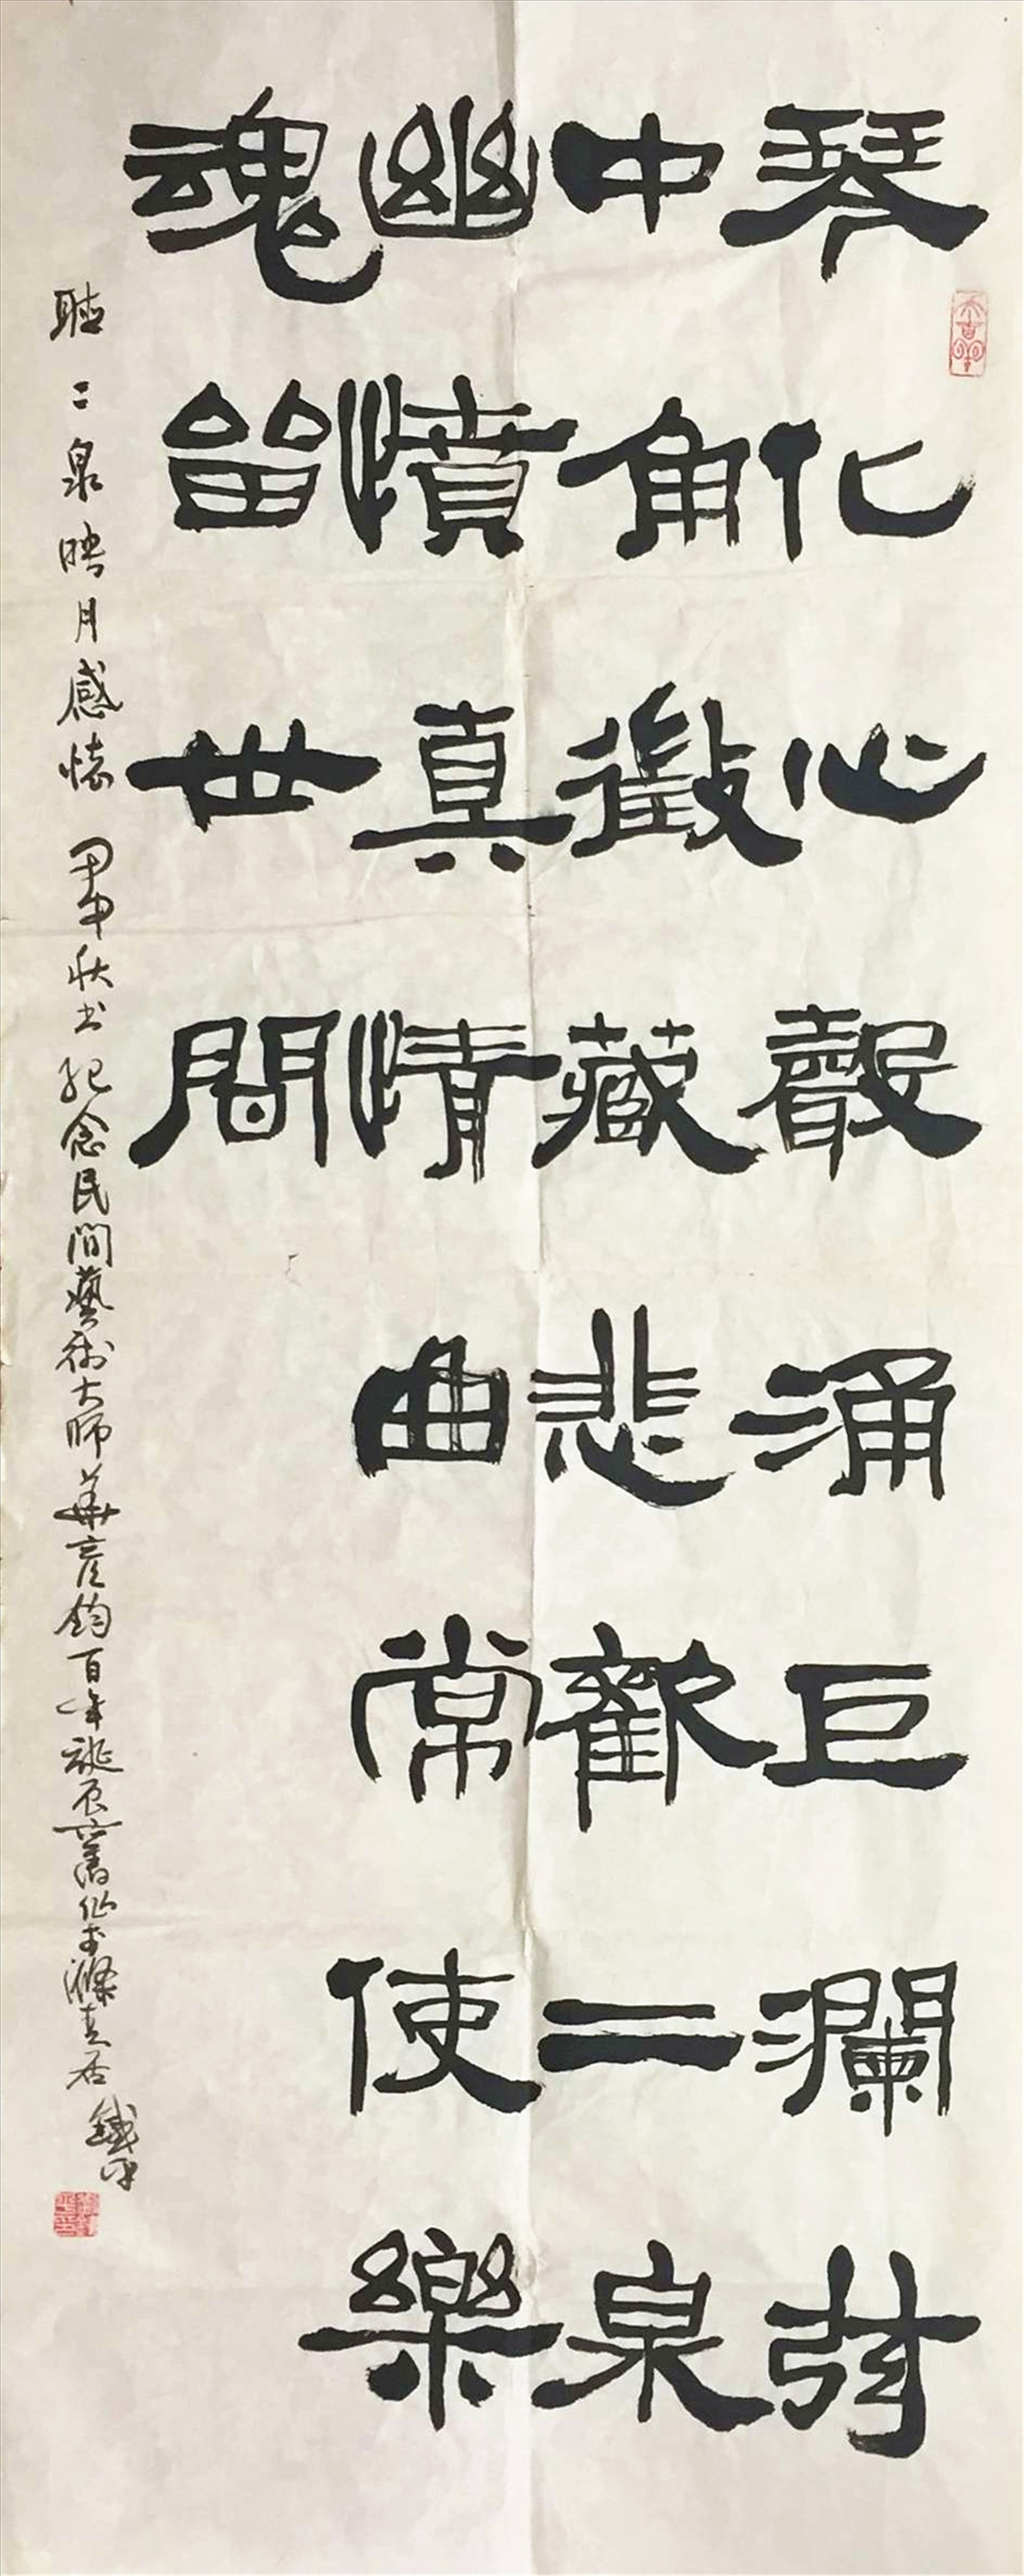 琴化心聲涌巨瀾弦
中角徵藏悲歡二泉
幽憤真情曲常使樂
魂留世間
聽二泉映月感懷 甲申秋書紀念民間藝術大師華彥鈞百年誕辰舊作於滌青居 鐵平